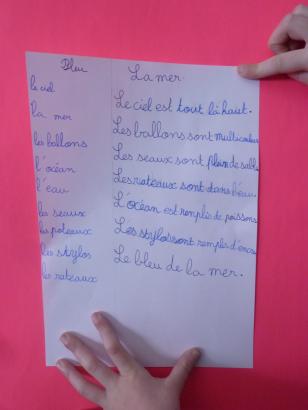 Bleu
le ciel
la mer
les ballons
l'océan
l'eau
les seaux
les poteaux
les stylos
les rateaux
La mer.
Le ciel est tout là haut.
Les ballons sont multicouleur
Les seaux sont plein de sable.
Les rateaux sont dans l'eau.
L'océan est remplie de poissons.
Les stylos sont remplis d'encre
Le bleu de la mer.